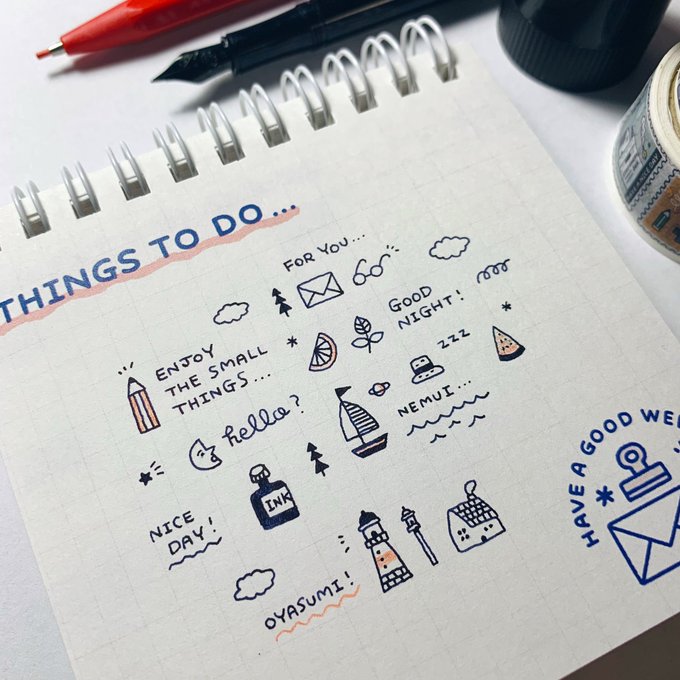 THINGS TO DO...
FOR YOU...
GOOD
NIGHT!
ENJOY
THE SMALL
THINGS...
zzz
hello?
NEMUI...
INK
NICE
DAY!
OYASUMI!
HAVE A GOOD